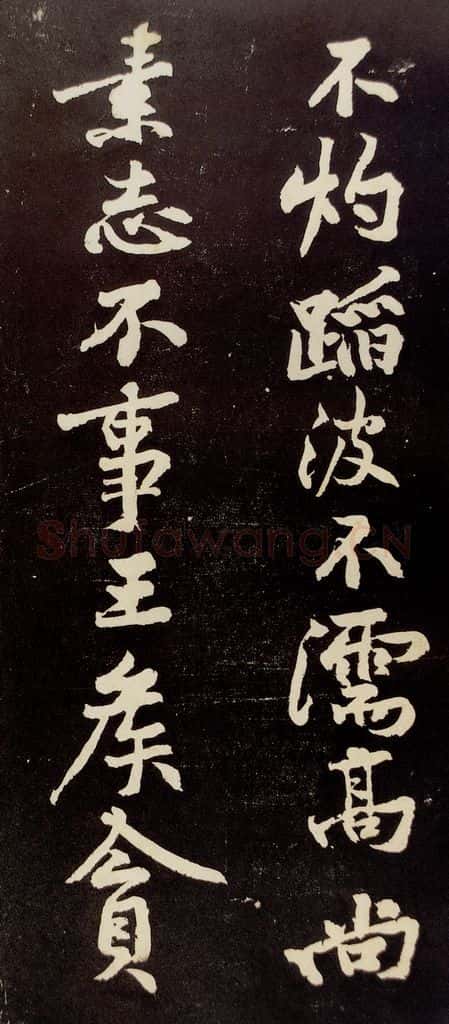 不灼蹈波不濡高尚
素志不事王侯贪
Shufawang.CN